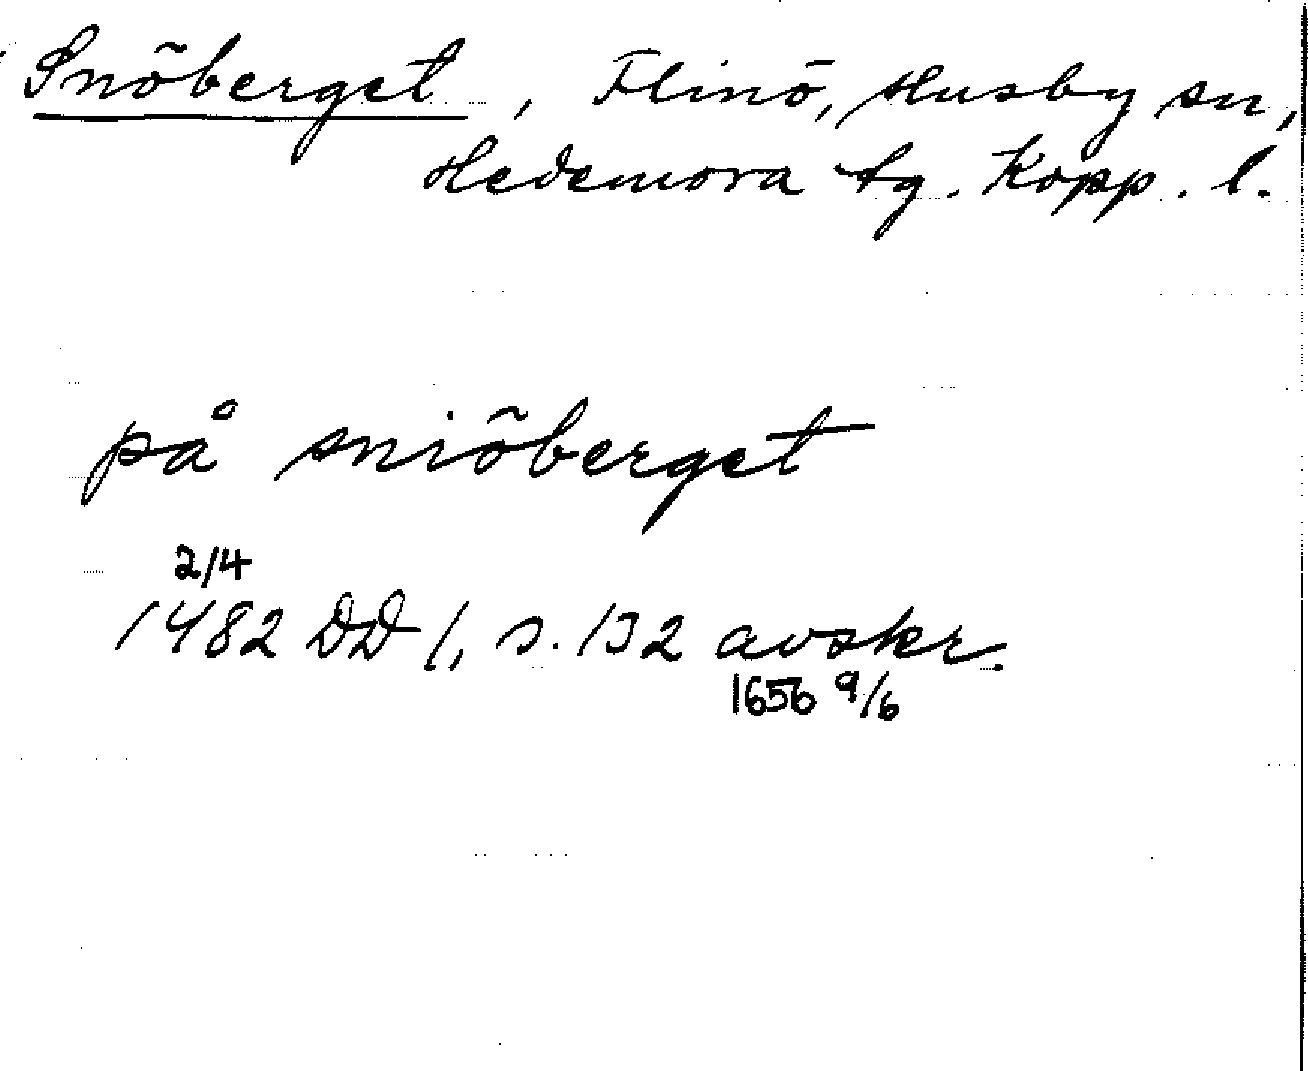 Snöberget, Flinö, Husby sn,
Hedemora tg. Kopp. l.
på sniöberget
2/4
1482 DD 1, s. 132 avskr.
1656 9/6